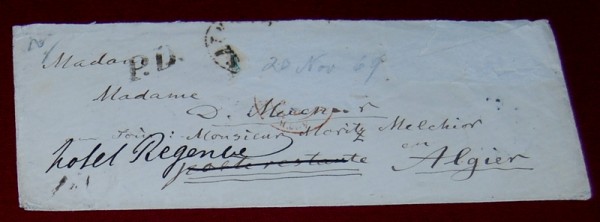 Madame
P.D.
20 Nov 69
Madame
D.
Monsieur Moritz Melchior
hotel Regence
poste restante
en Algier